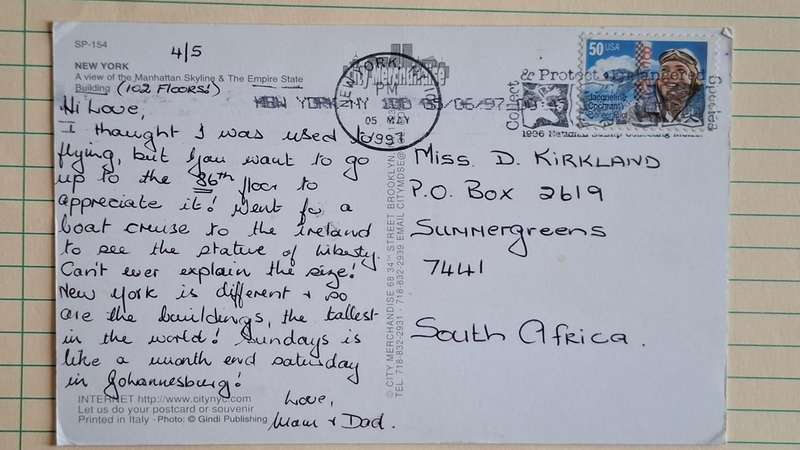 SP-154
4/5
NEW YORK
A view of the Manhattan Skyline & The Empire State
Building (102 FLOORS!)
Hi Love,
I thought I was used to
flying, but you want to go
up to the 86th floor to
appreciate it! Went for a
boat cruise to the ireland
to see the statue of liberty.
Can't ever explain the size!
New York is different + so
are the buildings, the tallest
in the world! Sundays is
like a month end saturday
in Johannesburg!
Love,
Mum + Dad.
INTERNET http://www.citynyc.com
Let us do your postcard or souvenir
Printed in Italy - Photo: © Gindi Publishing
© CITY MERCHANDISE 68 34th STREET BROOKLYN,
TEL 718-832-2931 · 718-832-2939 EMAIL CITYMDSE@
City Merchandise
NEW YORK, N
PM
05 MAY
1997
NEW YORK NY 100 05/06/97
Collect
& Protect Endangered
Species
1996 National Stamp Collecting Month
50 USA
Jacqueline
Cochran
Pioneer Pilot
Miss D. KIRKLAND
P.O. Box 2619
SUMMERGREENS
7441
South Africa.